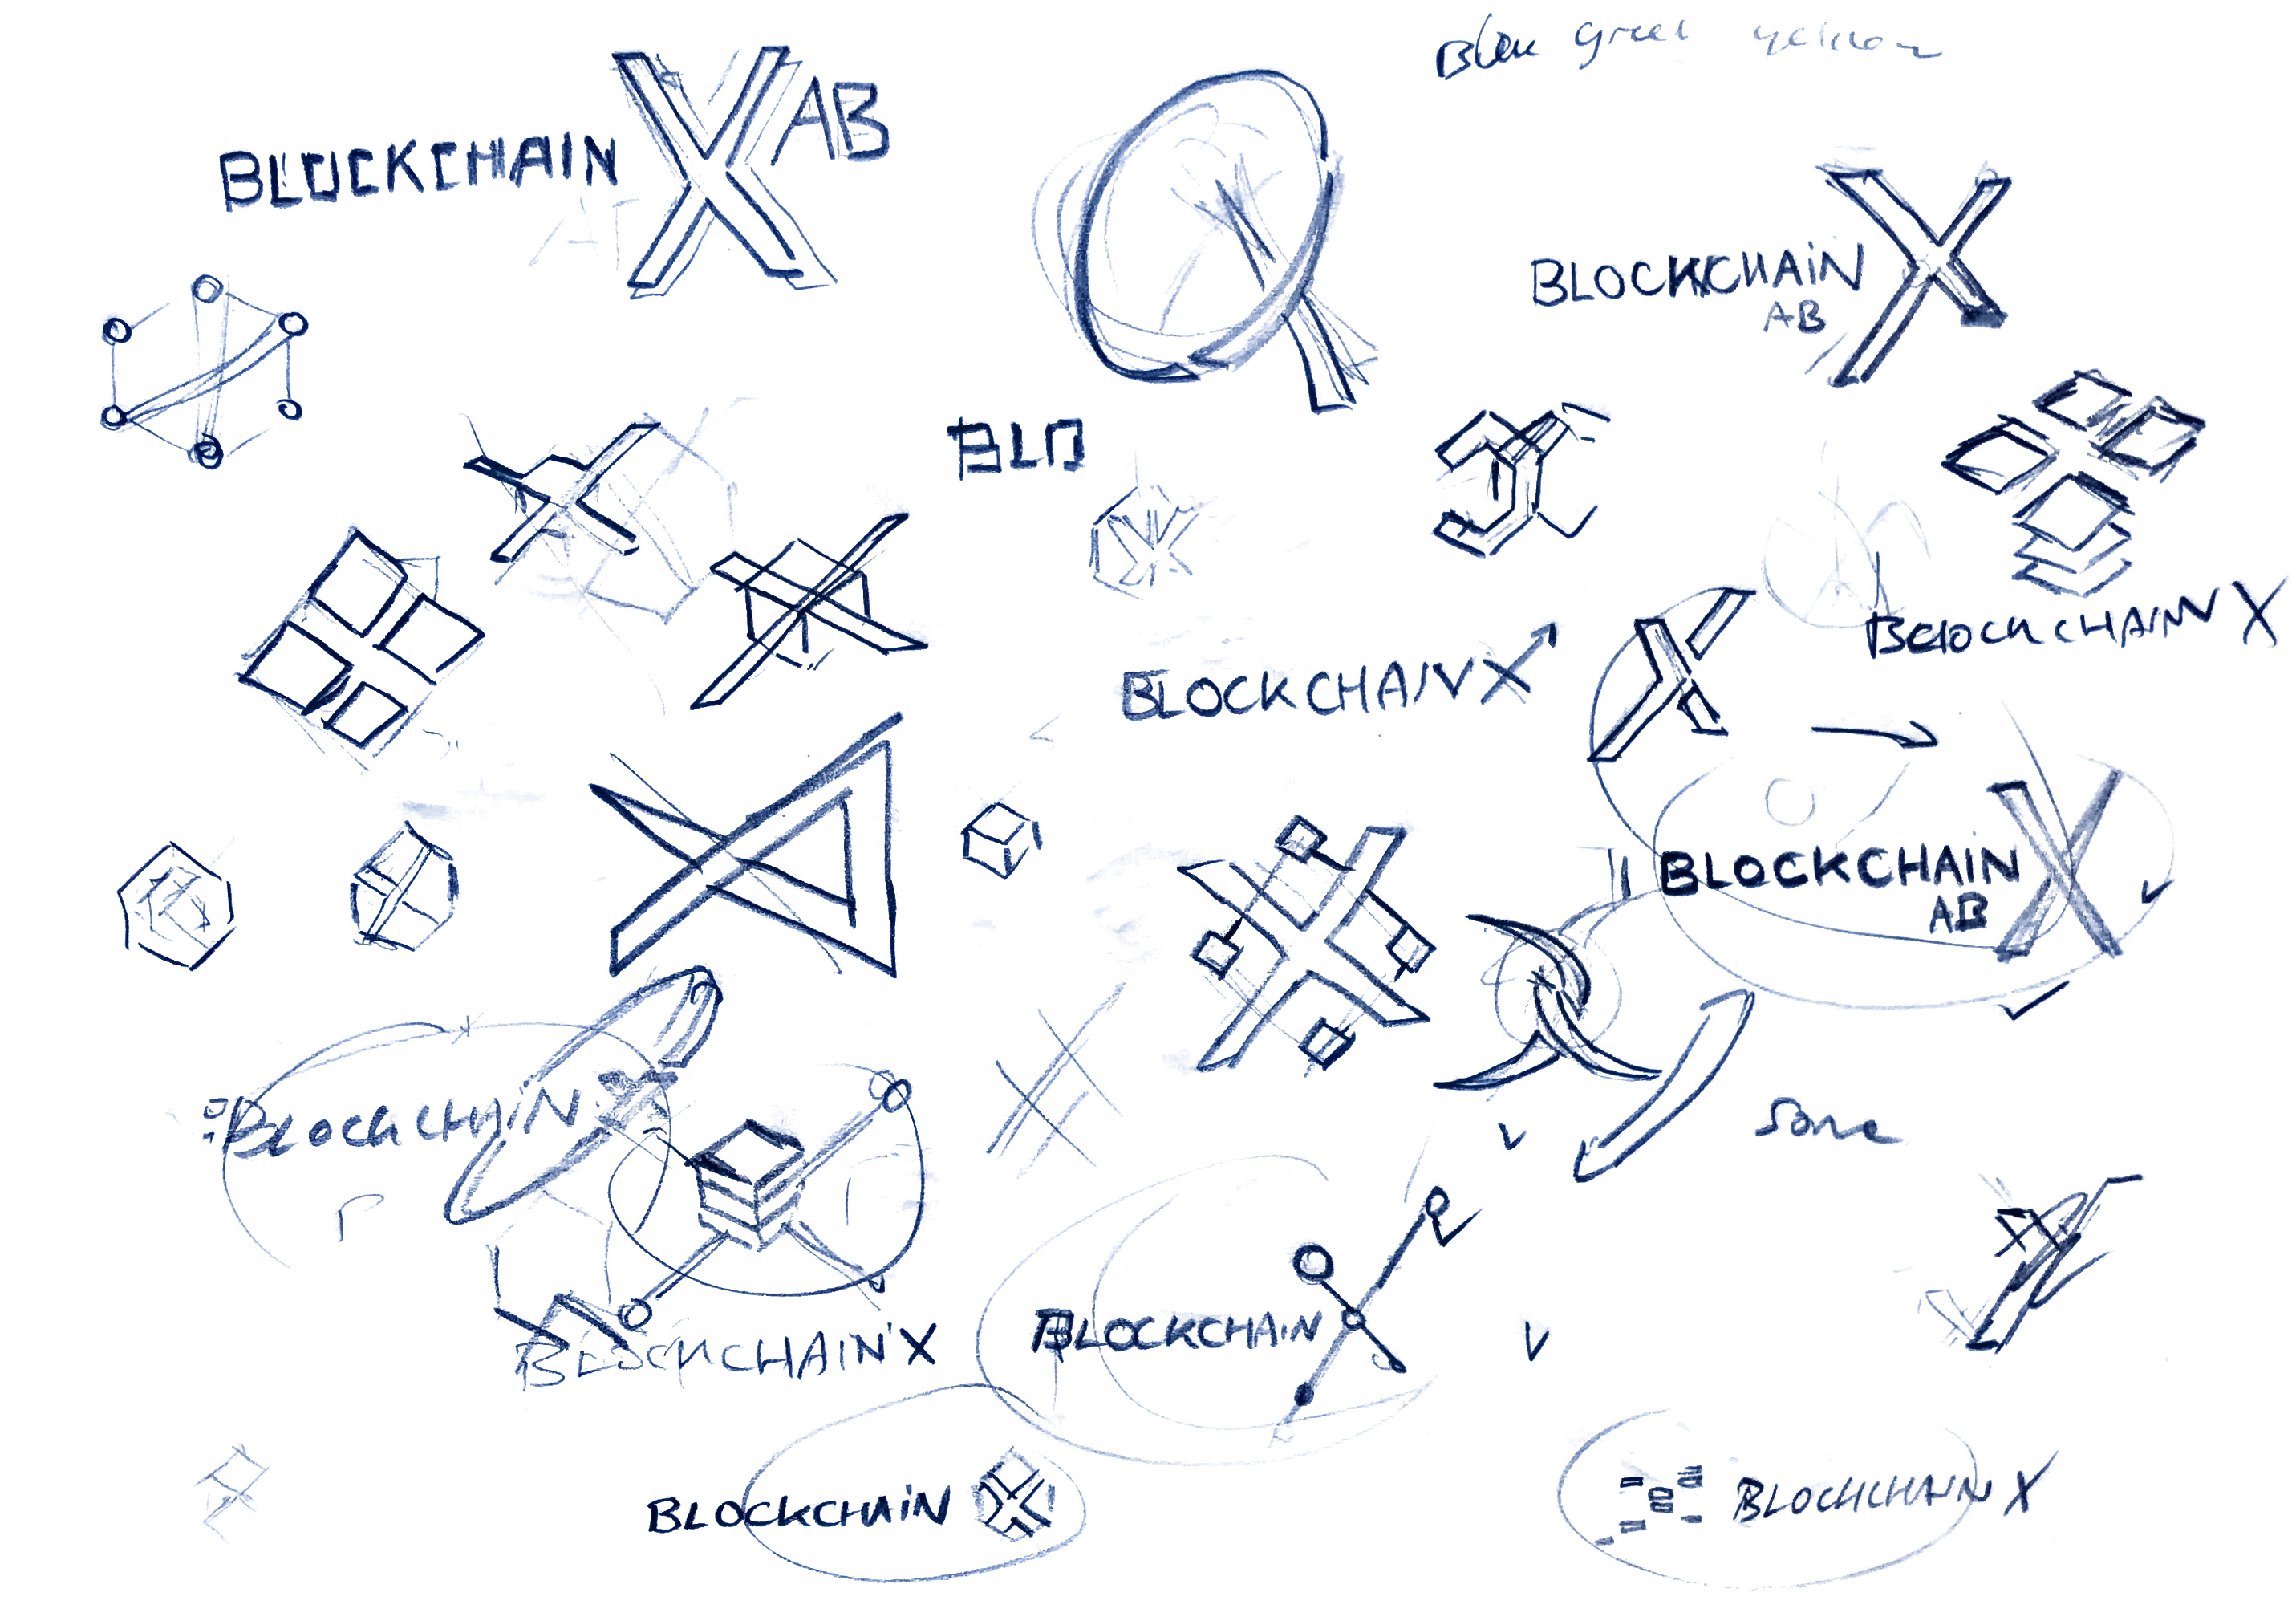 Blue Green yellow
BLOCKCHAIN X AB
BLOCKCHAIN X
AB
BLO
BLOCKCHAIN X
BLOCKCHAIN X
BLOCKCHAIN X
AB
BLOCKCHAIN X
BLOCKCHAIN X
BLOCKCHAIN X
BLOCKCHAIN X
BLOCKCHAIN X